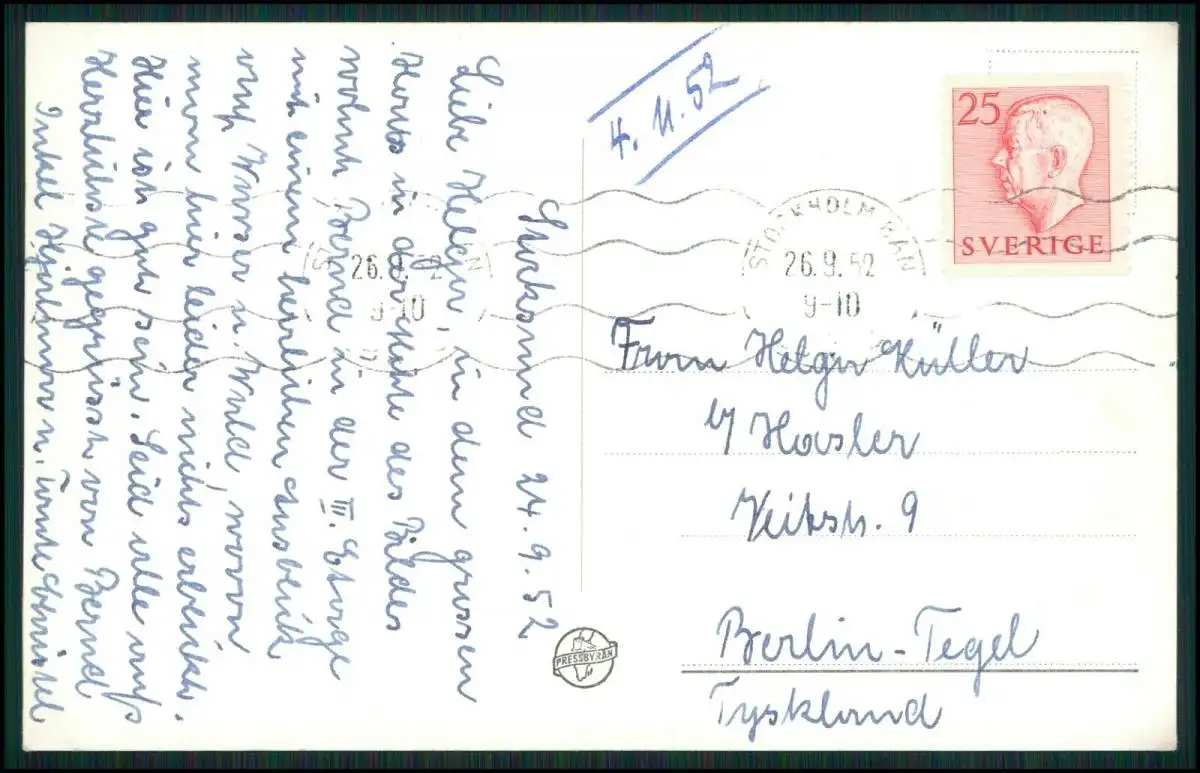 Stocksund 24.9.52
Liebe Helga, in dem grossen
Haus in der Mitte des Bildes
wohnt Bernd in der III. Etage
mit einem herrlichen Ausblick
auf Wasser u. Wald, wovon
man hier leider nichts erblickt.
Hier ist gut sein. Seid alle aufs
Herzlichste gegrüsst von Bernd
Onkel Hjalmar u. Tante Christel
4. 11. 52
25
SVERIGE
STOCKHOLM BAN
26.9.52
9-10
STOCKHOLM BAN
26.9.52
9-10
Frau Helga Küller
b/ Hasler
Veitstr. 9
Berlin-Tegel
Tyskland
PRESSBYRÅN